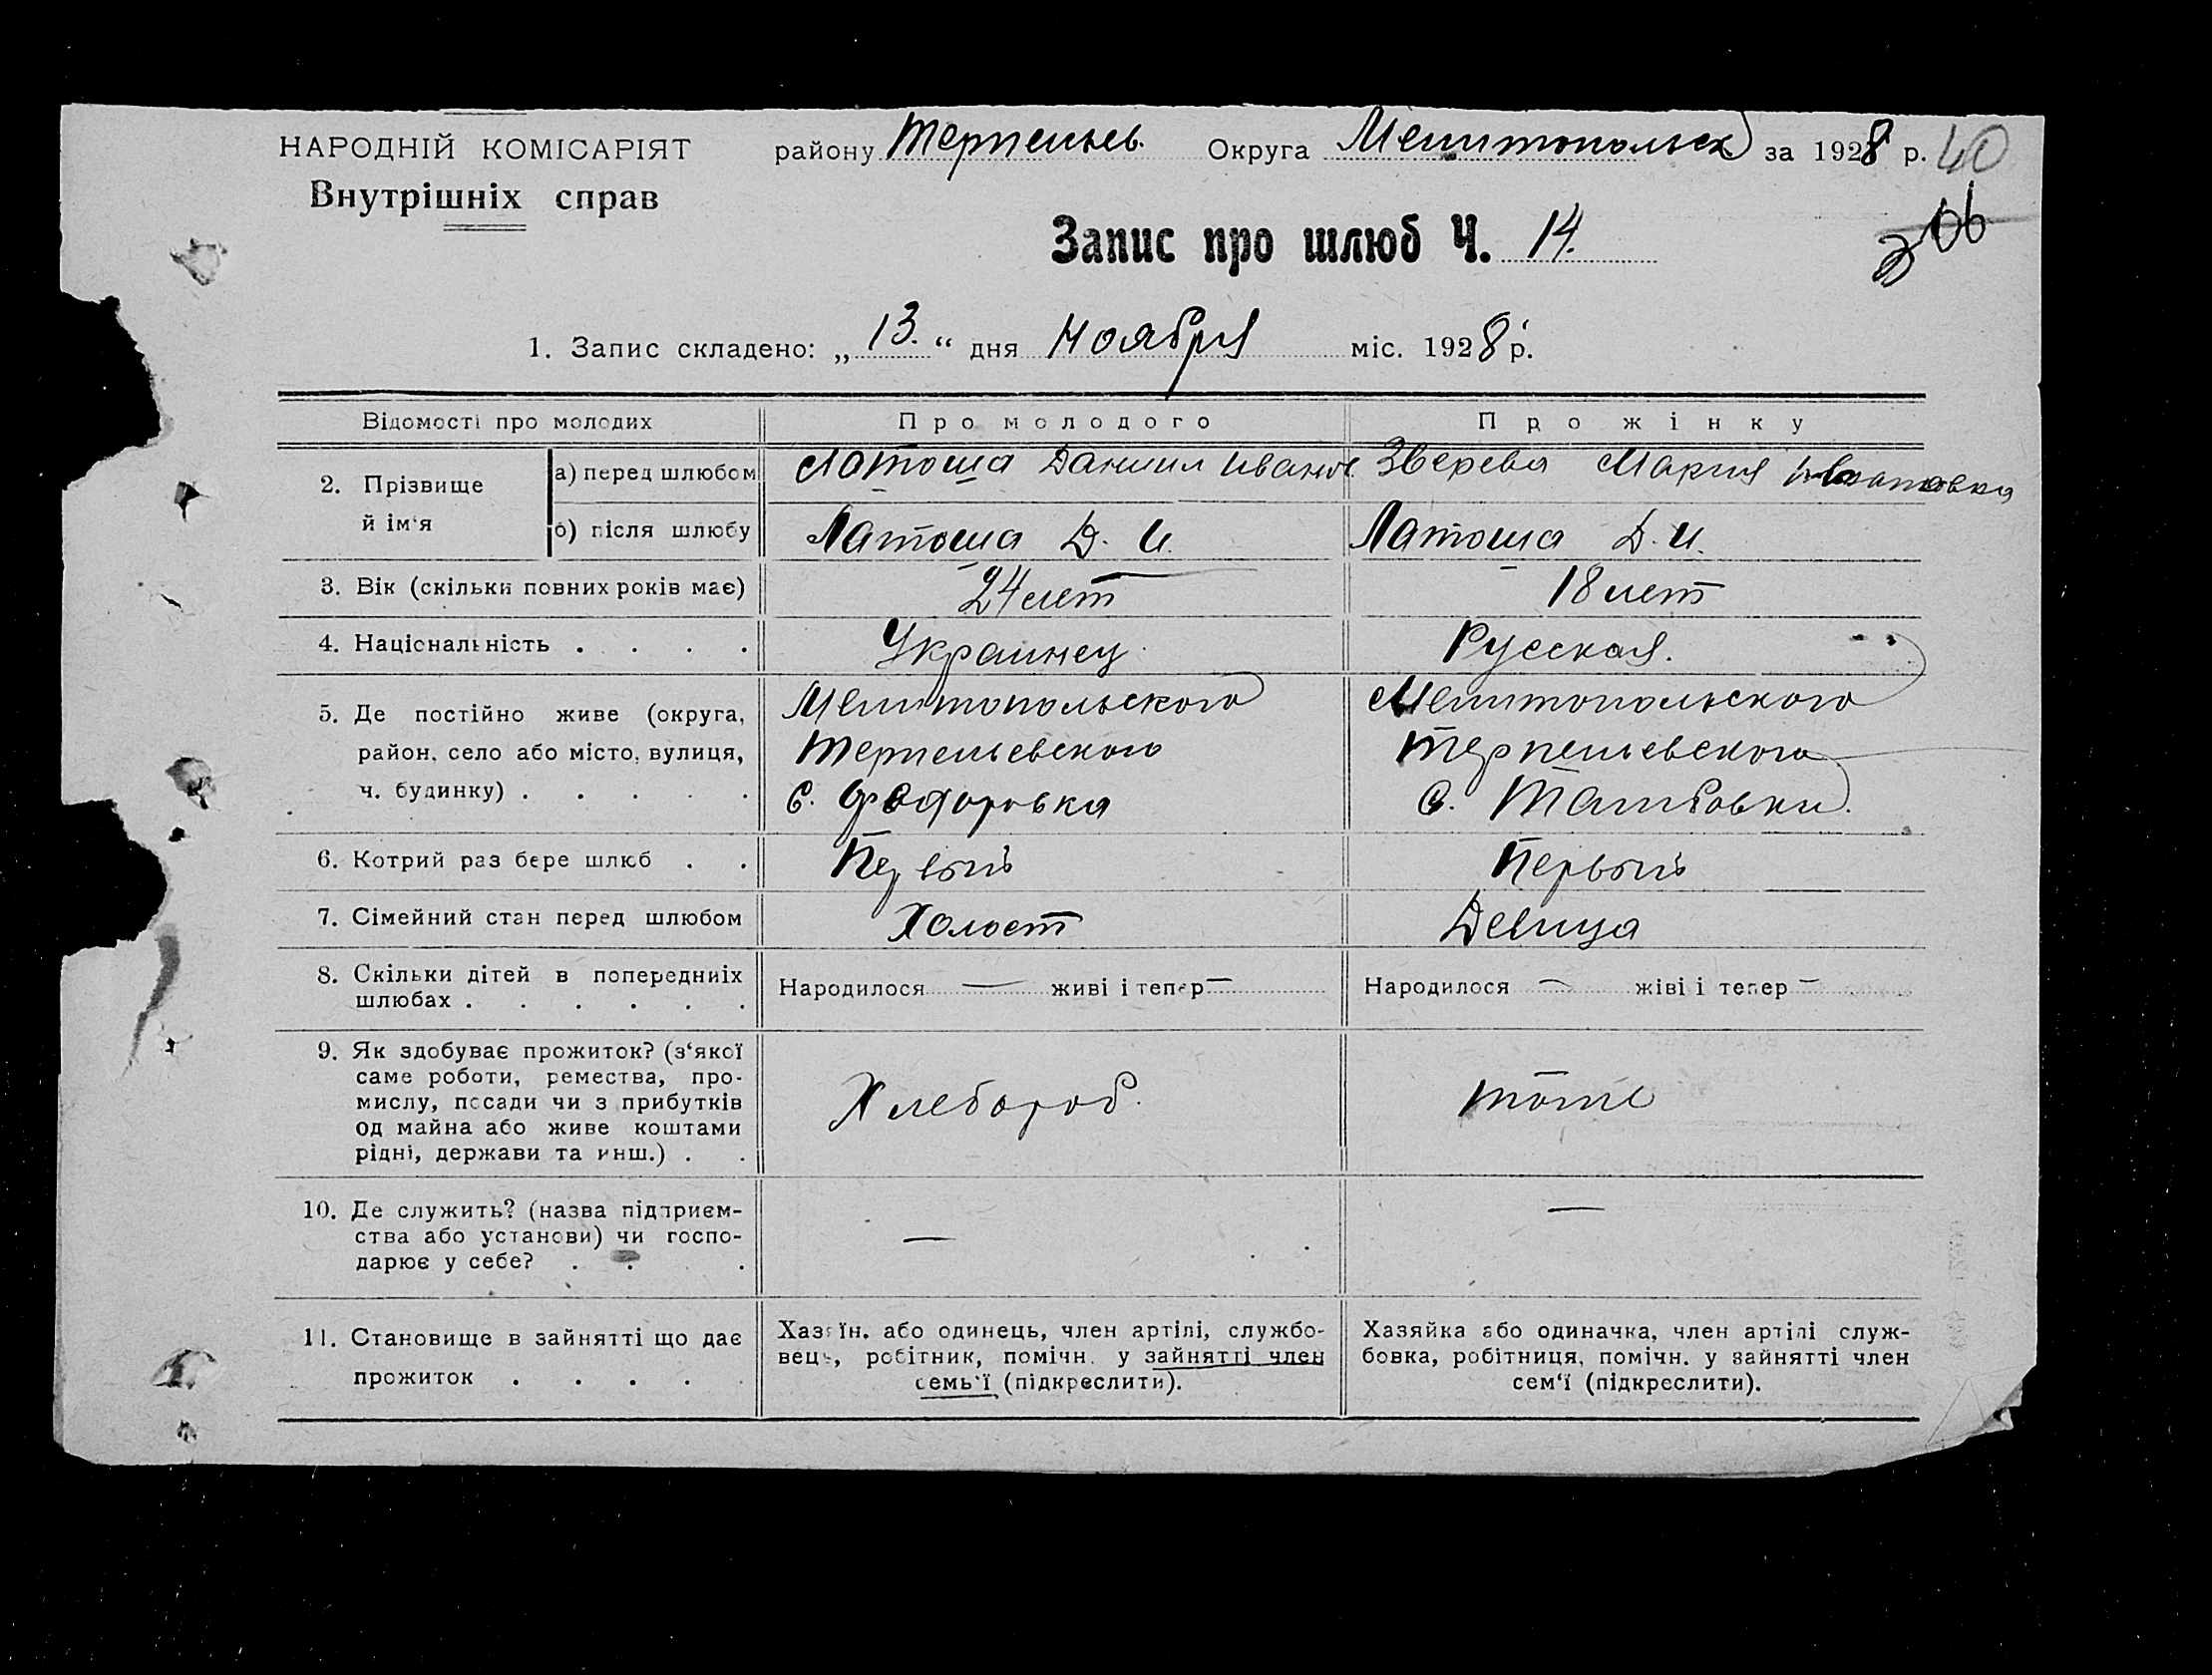 НАРОДНІЙ КОМІСАРІЯТ
Внутрішніх справ
району Терпеньев. Округа Мелитопольск за 1928 р. 40
306
Запис про шлюб Ч. 14.
1. Запис складено: „13.“ дня ноября міс. 1928 р.
Відомості про молодих Про молодого Про жінку
2. Прізвище й ім'я а) перед шлюбом Латоша Даниил Иванов. Зверева Мария
б) після шлюбу Латоша Д. И. Латоша Д. И.
3. Вік (скільки повних років має) 24 лет 18 лет
4. Національність . . . . Украинец Русская.
5. Де постійно живе (округа, Мелитопольского Мелитопольского
район, село або місто, вулиця, Терпеньевского Терпеньевского
ч. будинку) . . . . . с. Федоровка с.
6. Котрий раз бере шлюб . . Первый Первый
7. Сімейний стан перед шлюбом Холост Девица
8. Скільки дітей в попередниіх
шлюбах . . . . . . Народилося — живі і тепер — Народилося — жіві і тепер —
9. Як здобуває прожиток? (з‘якої
саме роботи, ремества, про-
мислу, посади чи з прибутків Хлебороб. тоже
од майна або живе коштами
рідні, держави та инш.) . .
10. Де служить? (назва підприєм-
ства або установи) чи госпо- — —
дарює у себе? . . .
11. Становище в зайнятті що дає
прожиток . . . . .
Хазяїн. або одинець, член артілі, службо-
вець, робітник, помічн. у зайнятті член
семь‘ї (підкреслити).
Хазяйка або одиначка, член артілі служ-
бовка, робітниця, помічн. у зайнятті член
сем‘ї (підкреслити).